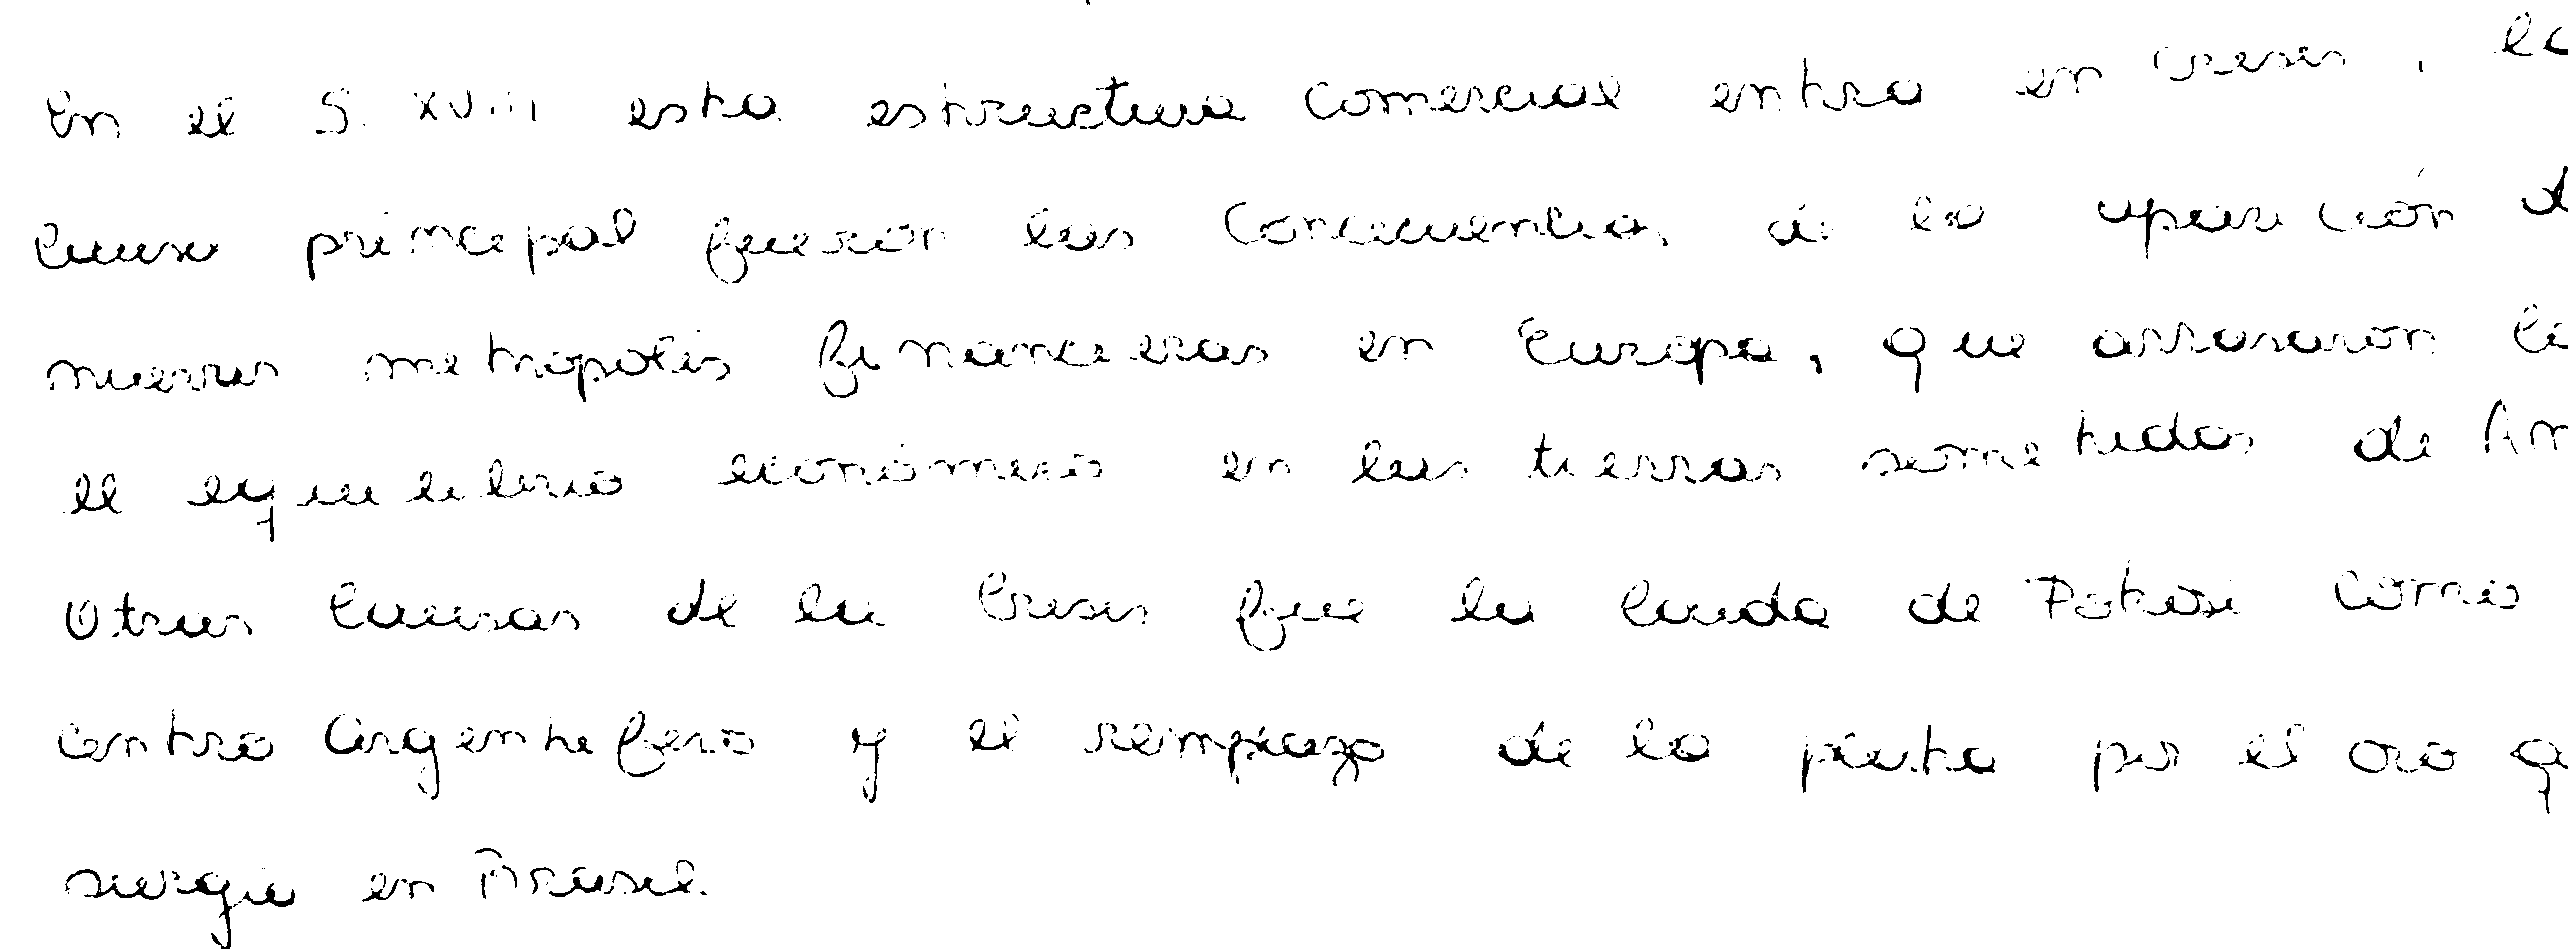 En el S. XVIII esta estructura comercial entra en crisis, la
causa principal fueron las concecuencias de la aparición d
nuevas metropolis financieras en Europa, que arrasaron la
el equilibrio económico en las tierras sometidas de Am
Otras causas de la crisis fue la caida de Potosi como
centro argentifero y el remplazo de la plata por el oro q
surgia en Brasil.